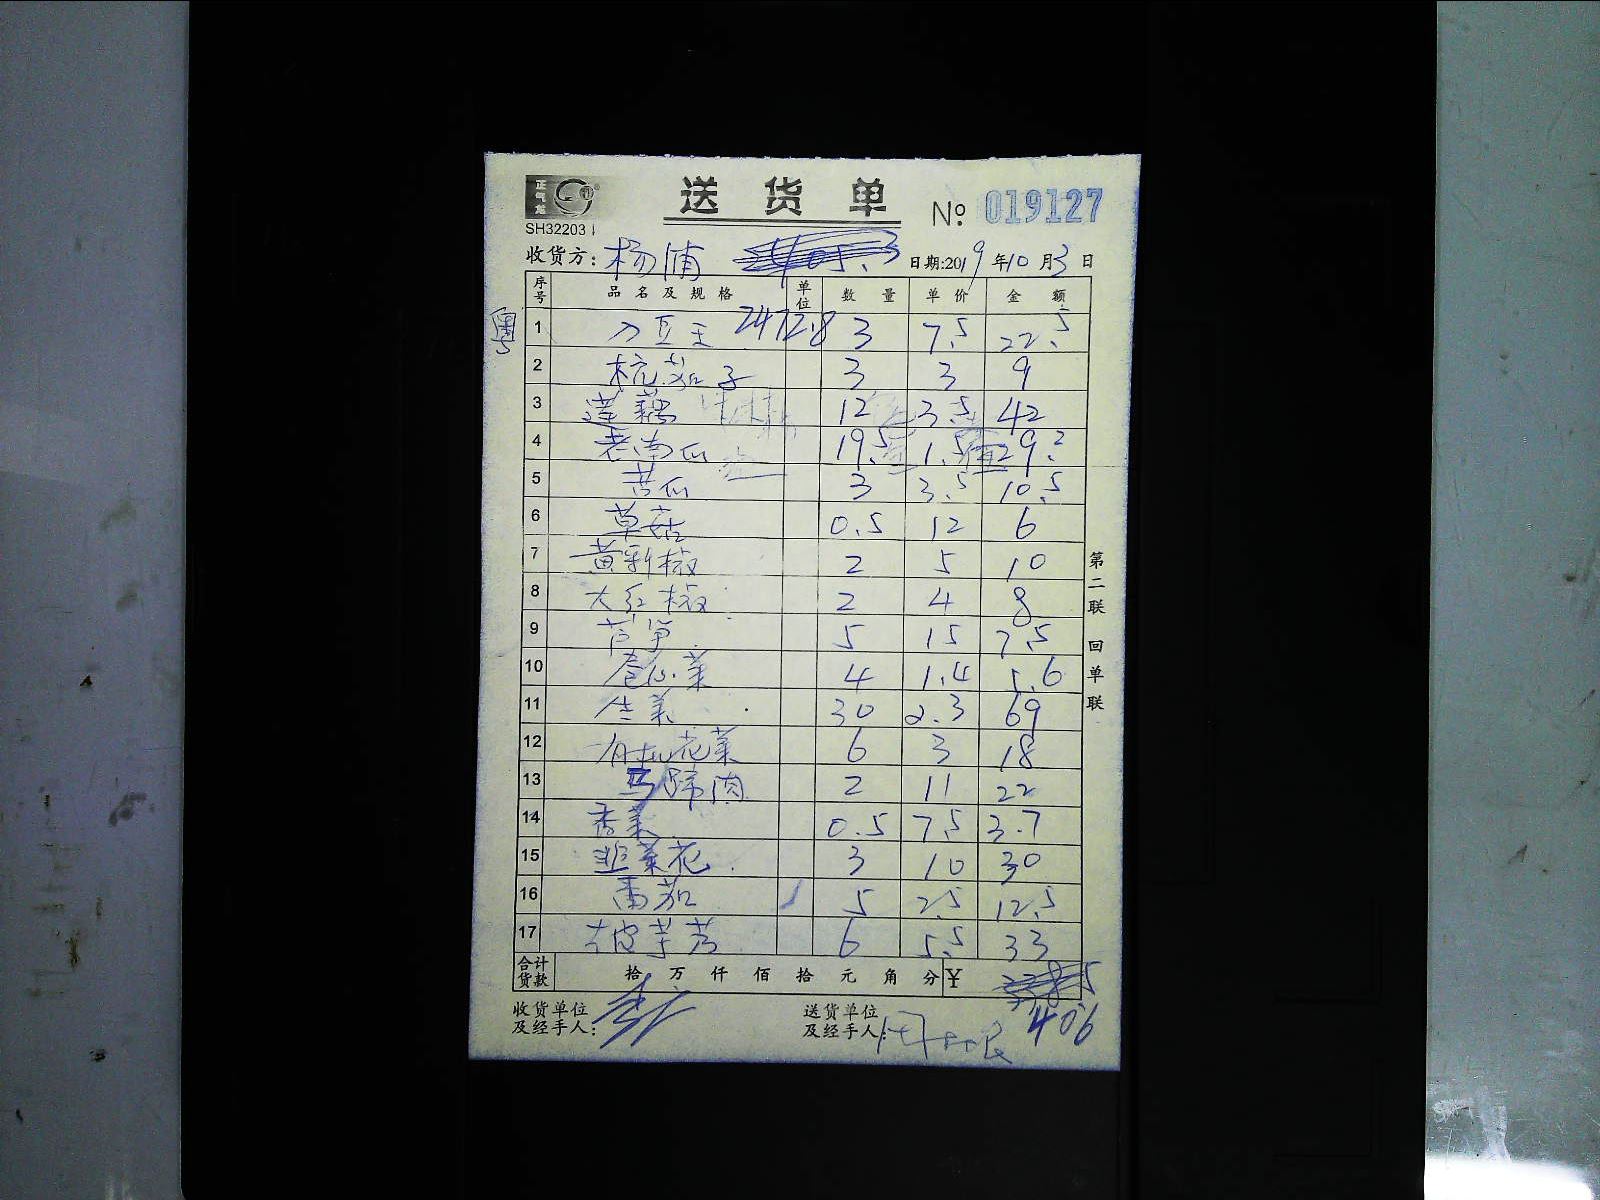 正气龙
送货单
№ 019127
SH32203
收货方: 杨浦 日期:2019年10月3日
序号 品名及规格 单位 数量 单价 金额
粤5
1 刀豆王 2472.8 3 7.5 22.5
2 杭茄子 3 3 9
3 莲藕 12 3.5 42
4 老南瓜 19.5 1.5 29.2
5 苦瓜 3 3.5 10.5
6 草菇 0.5 12 6
7 黄彩椒 2 5 10
8 大红椒 2 4 8
9 芦笋 5 15 7.5
10 卷心菜 4 1.4 5.6
11 生菜 30 2.3 69
12 有机花菜 6 3 18
13 马蹄肉 2 11 22
14 香菜 0.5 7.5 3.7
15 韭菜花 3 10 30
16 番茄 5 2.5 12.5
17 去皮芋艿 6 5.5 33
合计货款 拾 万 仟 佰 拾 元 角 分 ¥
406
收货单位及经手人:
送货单位及经手人:
第二联 回单联